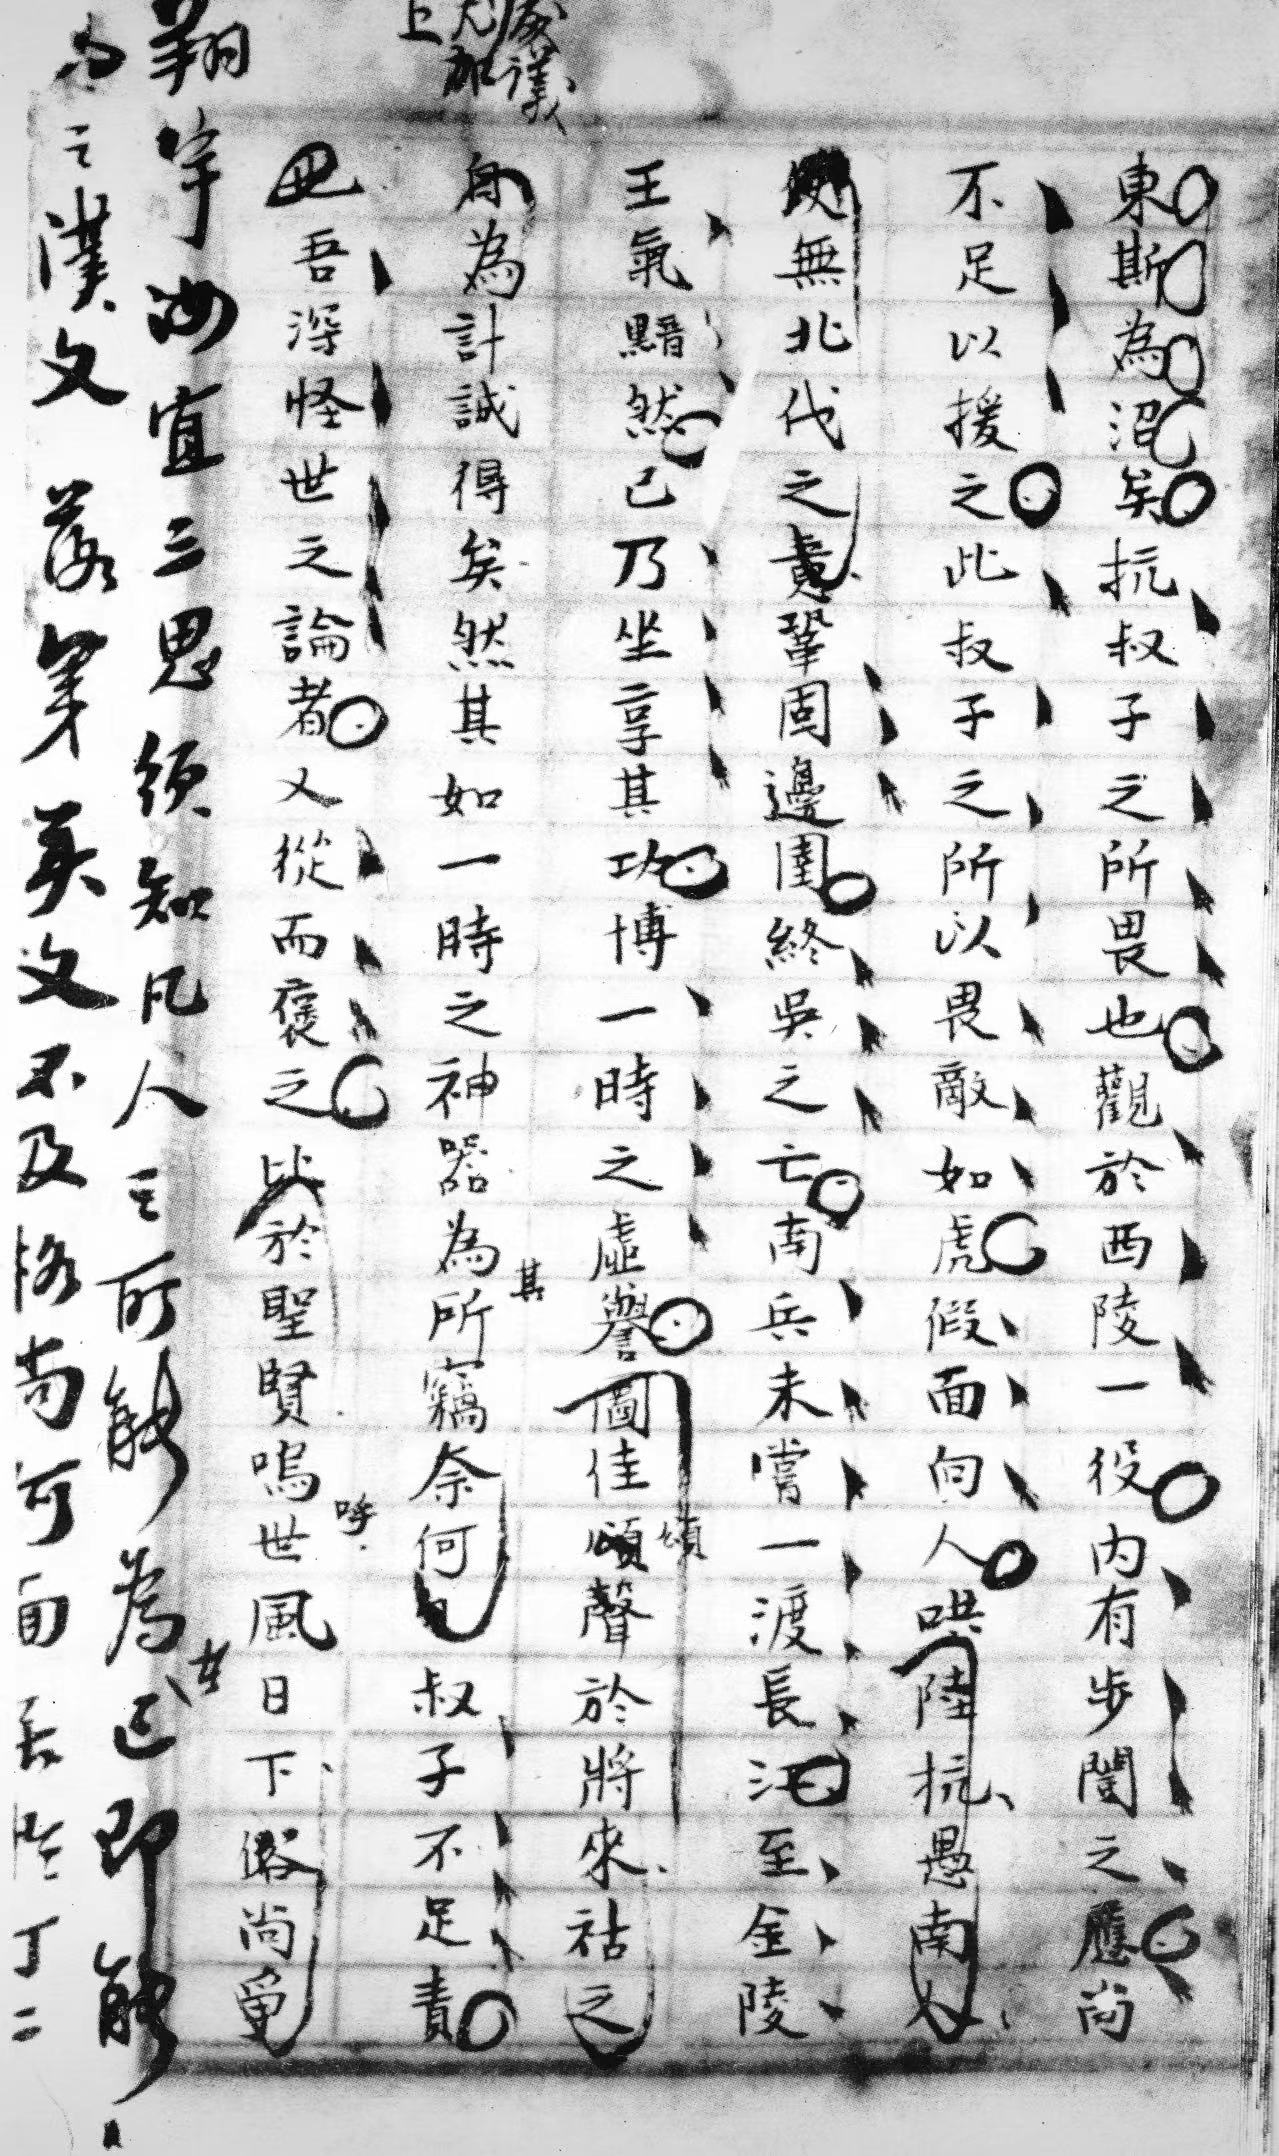 東斯為沼矣抗叔子之所畏也觀於西陵一役内有步闡之應尚
不足以援之此叔子之所以畏敵如虎假面向人哄陸抗愚南人
無北伐之責鞏固邊圉終吳之亡南兵未嘗一渡長江至金陵
王氣黯然己乃坐享其功博一時之虛譽圖佳頌聲於將來祜之
頌
身為計誠得矣然其如一時之神器為所竊奈何叔子不足責
其
吾深怪世之論者又從而褒之比於聖賢嗚世風日下儇尚爭
呼
上
翔宇汝宜三思須知凡人之所能為己即能
之漢文落第英文不及格尚可